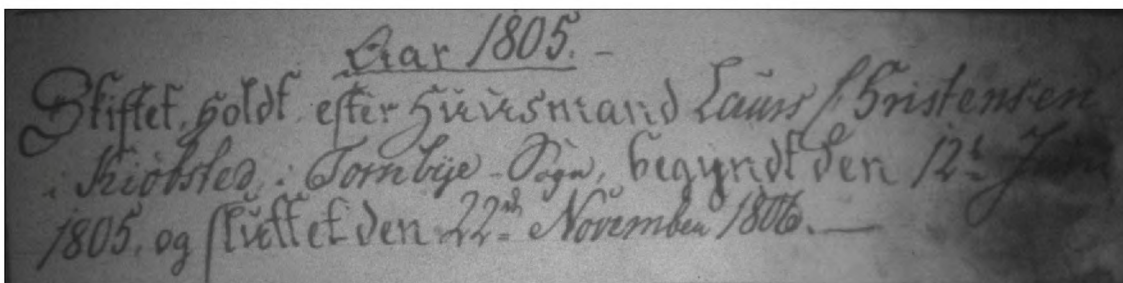 Aar 1805. -
Skiftet, holdt efter Huusmand Laurs Christensen
i Kiøbsted, i Tornbye - Sogn, begyndt den 12te Juni
1805, og sluttet den 22de November 1806. —